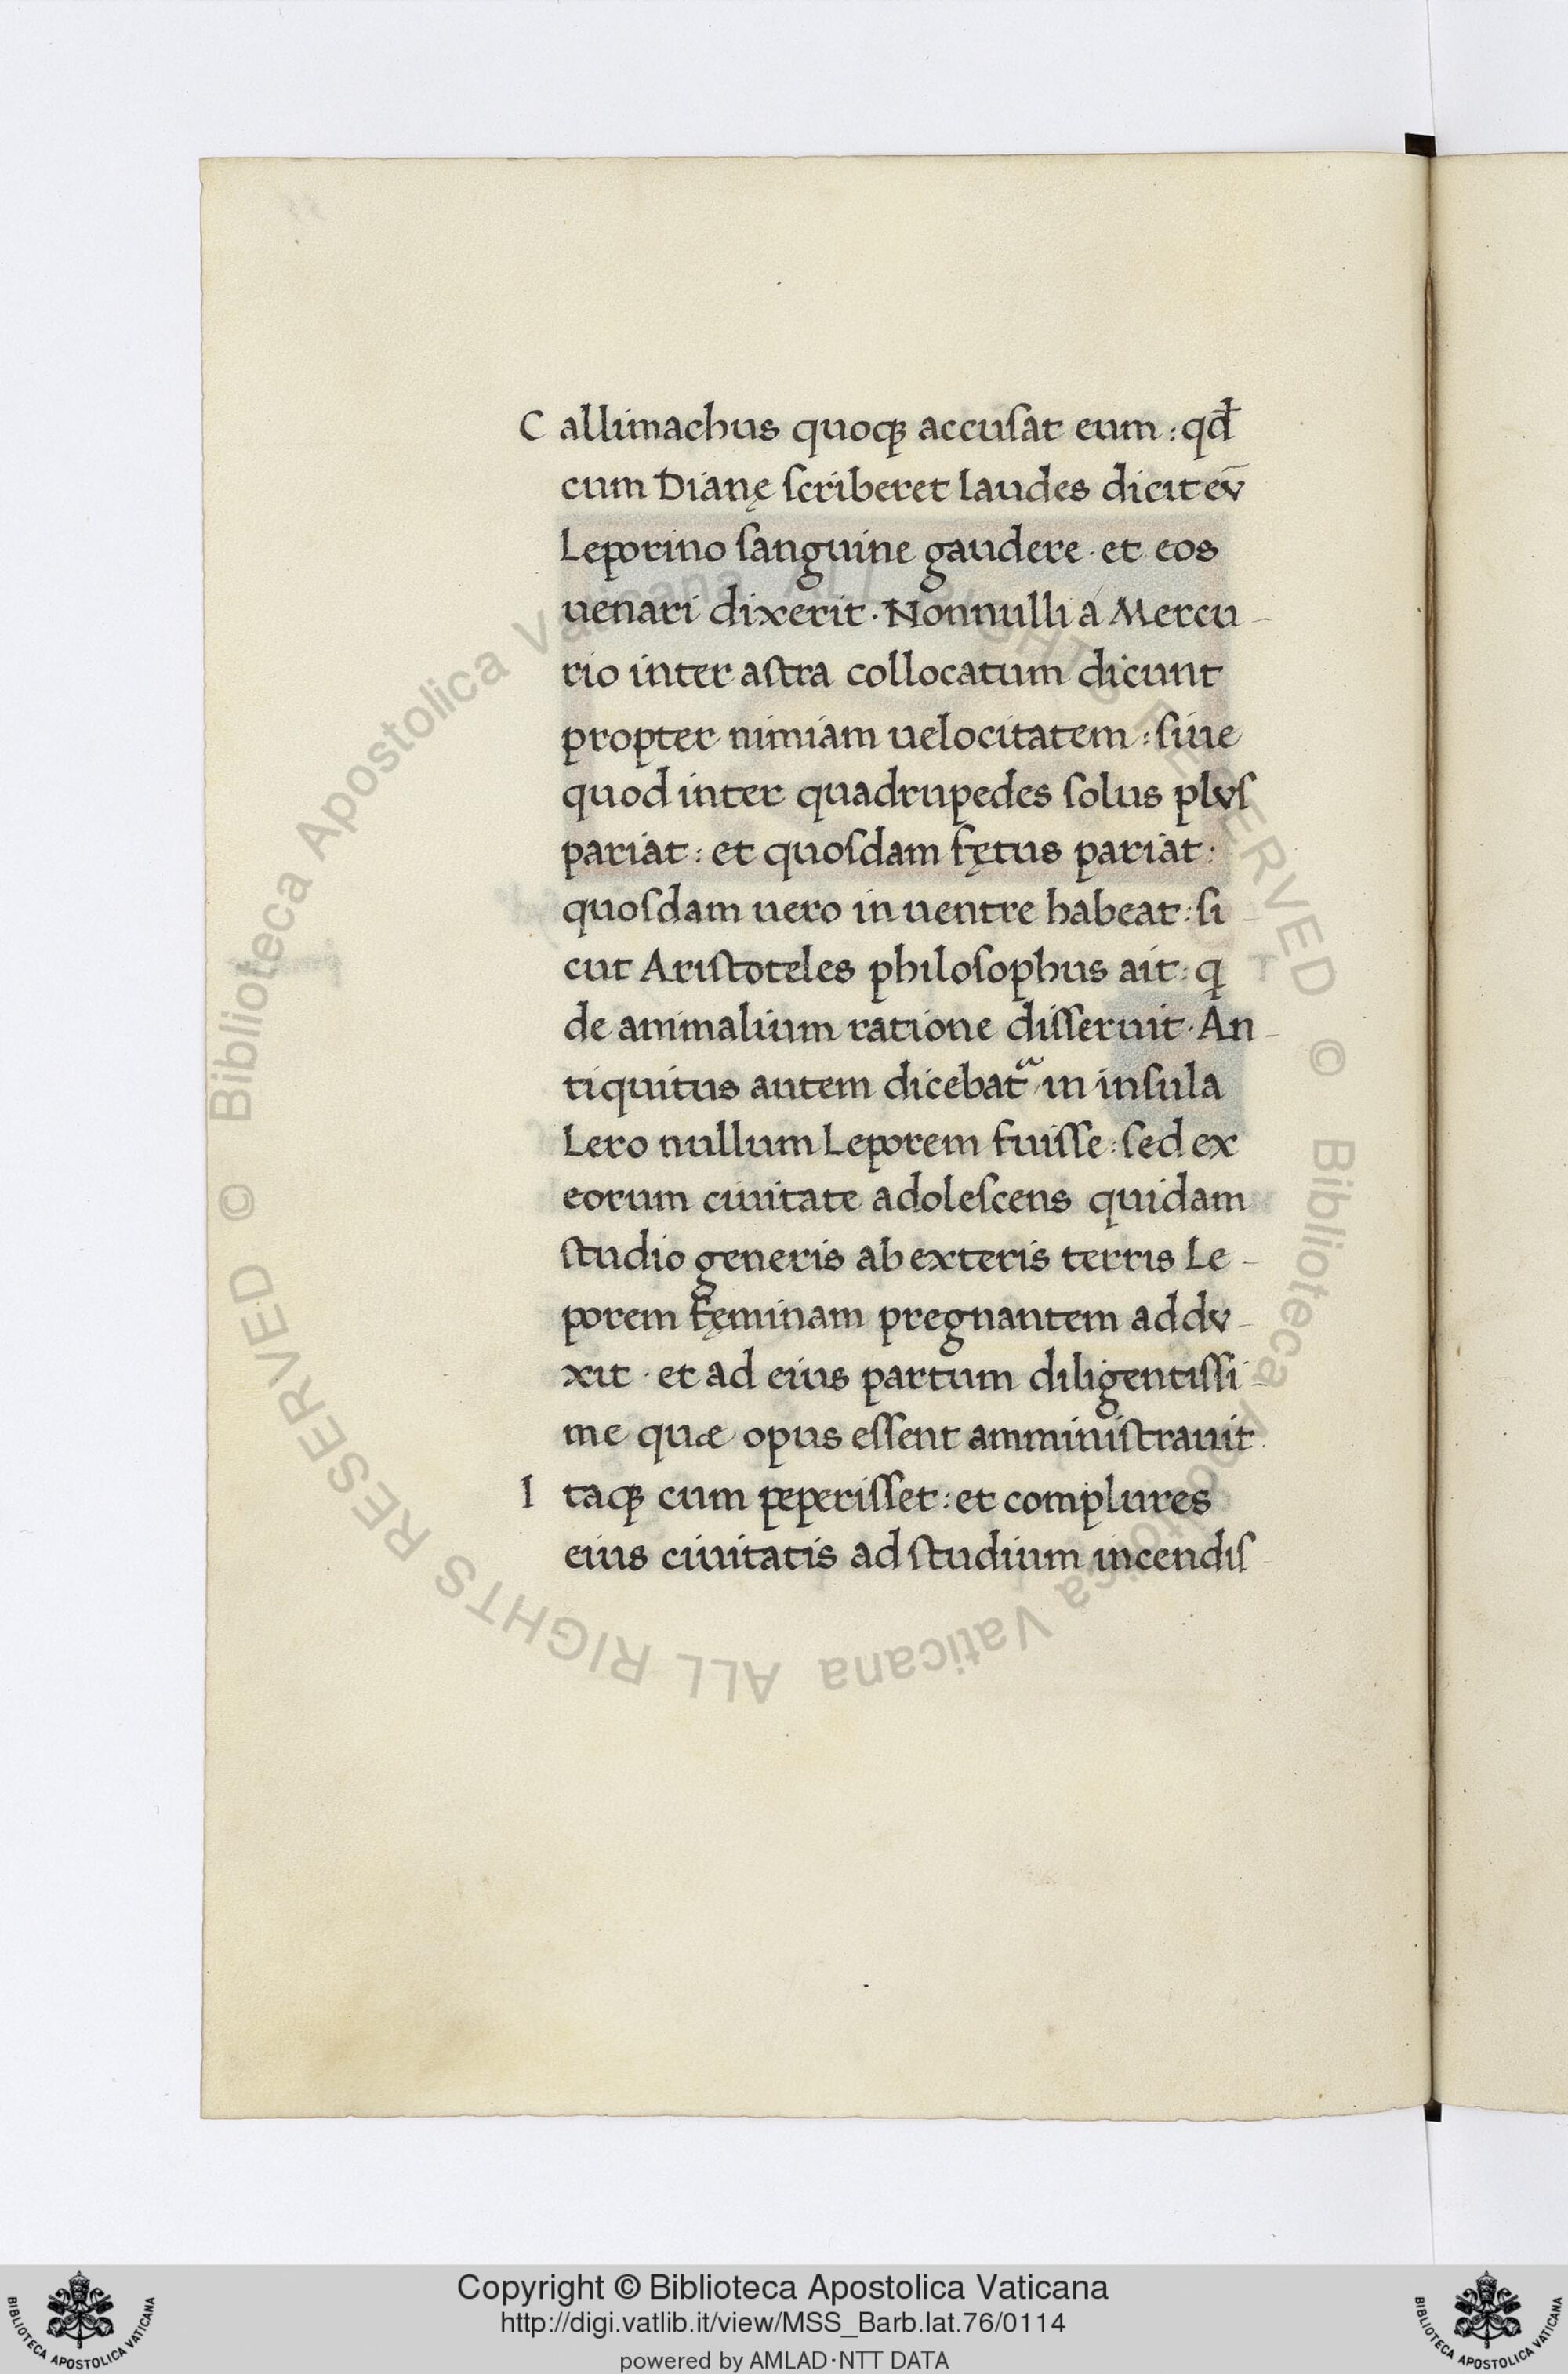 Callimachus quoqꝫ accuſat eum : qđ
cum Dianę ſcriberet laudes dicit ev̄
Leporino ſanguine gaudere · et eos
uenari dixerit · Nonnulli á Mercu-
rio inter aſtra collocatum dicunt
propter nimiam uelocitatem : ſiue
quod inter quadrupedes ſolus plvſ
pariat : et quoſdam fętus pariat ·
quoſdam uero in uentre habeat : ſi-
cut Ariſtoteles philoſophus ait : q
de animalium ratione diſſeruit · An-
tiquitus autem dicebatᷓ in inſula
Lero nullum Leporem fuiſſe : ſed ex
eorum ciuitate adoleſcens quidam
ſtudio generis ab exteris terris Le-
porem fęminam pregnantem addv-
xit · et ad eius partum diligentiſſi-
me quæ opus eſſent amminiſtrauit ·
Itaqꝫ cum peperiſſet : et complures
eius ciuitatis ad ſtudium incendiſ
© Biblioteca Apostolica Vaticana ALL RIGHTS RESERVED © Biblioteca Apostolica Vaticana ALL RIGHTS RESERVED
Copyright © Biblioteca Apostolica Vaticana
http://digi.vatlib.it/view/MSS_Barb.lat.76/0114
powered by AMLAD·NTT DATA
BIBLIOTECA APOSTOLICA VATICANA
BIBLIOTECA APOSTOLICA VATICANA